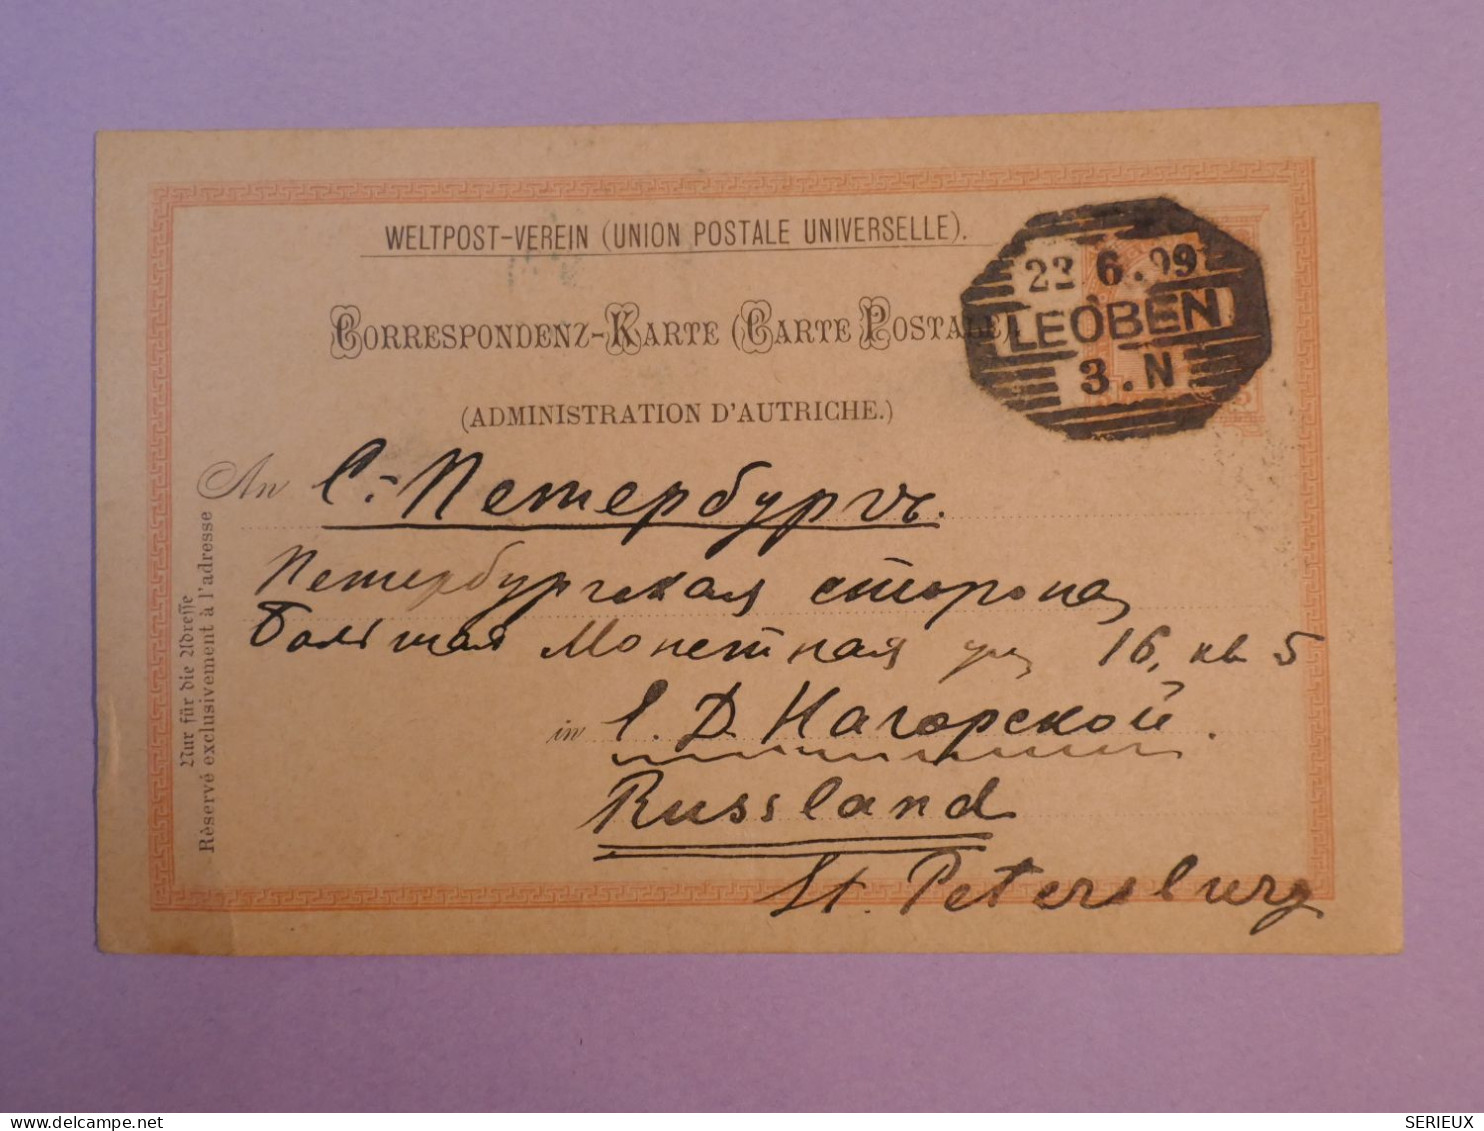 WELTPOST-VEREIN (UNION POSTALE UNIVERSELLE).
CORRESPONDENZ-KARTE (CARTE POSTALE)
(ADMINISTRATION D'AUTRICHE.)
22 6.99
LEOBEN
3.N
An С.-Петербургъ.
Петербургская сторона
Большая Монетная ул 16, кв 5
in С. Д. Нагорской.
Russland
St. Petersburg
Nur für die Adresse
Réservé exclusivement à l'adresse
SERIEUX